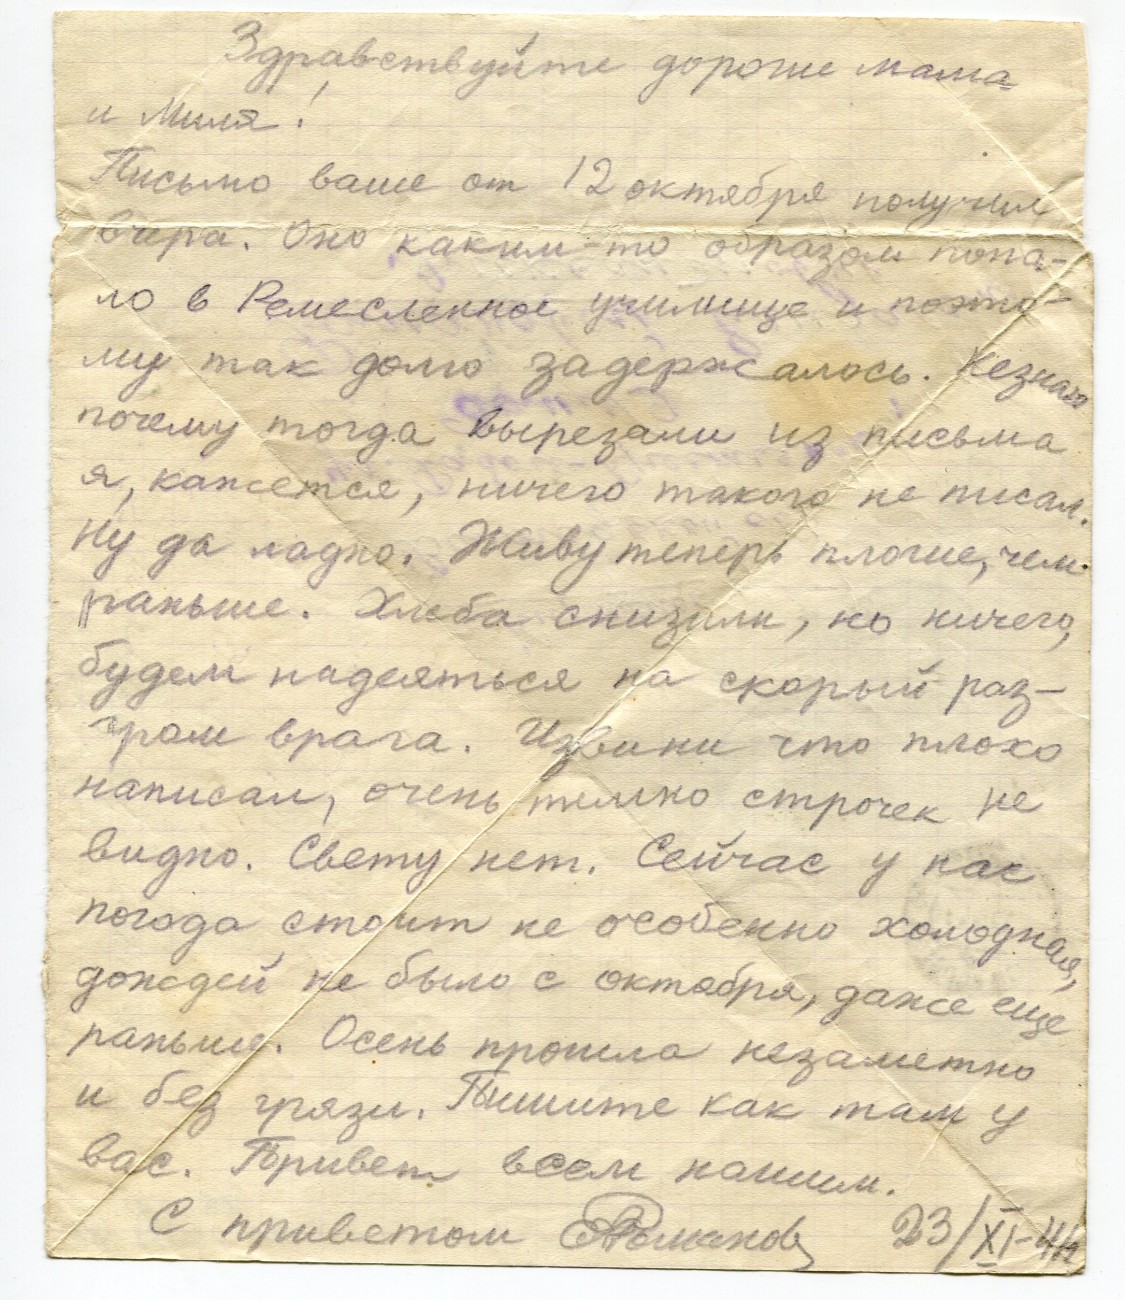 Здравствуйте дорогие мама
и Миля!
Письмо ваше от 12 октября получил
вчера. Оно каким-то образом попа-
ло в Ремесленное училище и поэто-
му так долго задержалось. Незнаю
почему тогда вырезали из письма
я, кажется, ничего такого не писал.
Ну да ладно. Живу теперь плохие, чем
раньше. Хлеба снизили, но ничего,
будем надеяться на скорый раз-
гром врага. Извини что плохо
написал, очень темно строчек не
видно. Свету нет. Сейчас у нас
погода стоит не особенно холодная,
дождей не было с октября, даже еще
раньше. Осень прошла незаметно
и без грязи. Пишите как там у
вас. Привет всем нашим.
С приветом Романов 23/XI-